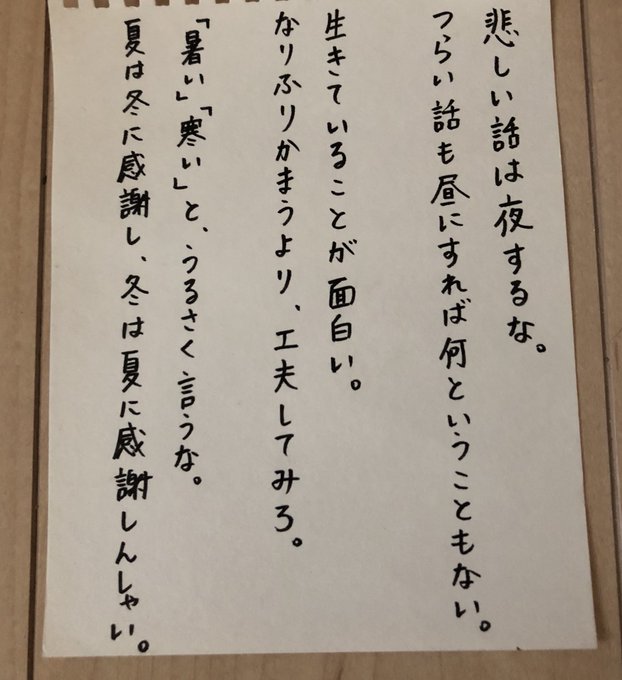 悲しい話は夜するな。
つらい話も昼にすれば何ということもない。
生きていることが面白い。
なりふりかまうより、工夫してみろ。
「暑い」「寒い」と、うるさく言うな。
夏は冬に感謝し、冬は夏に感謝しんしゃい。